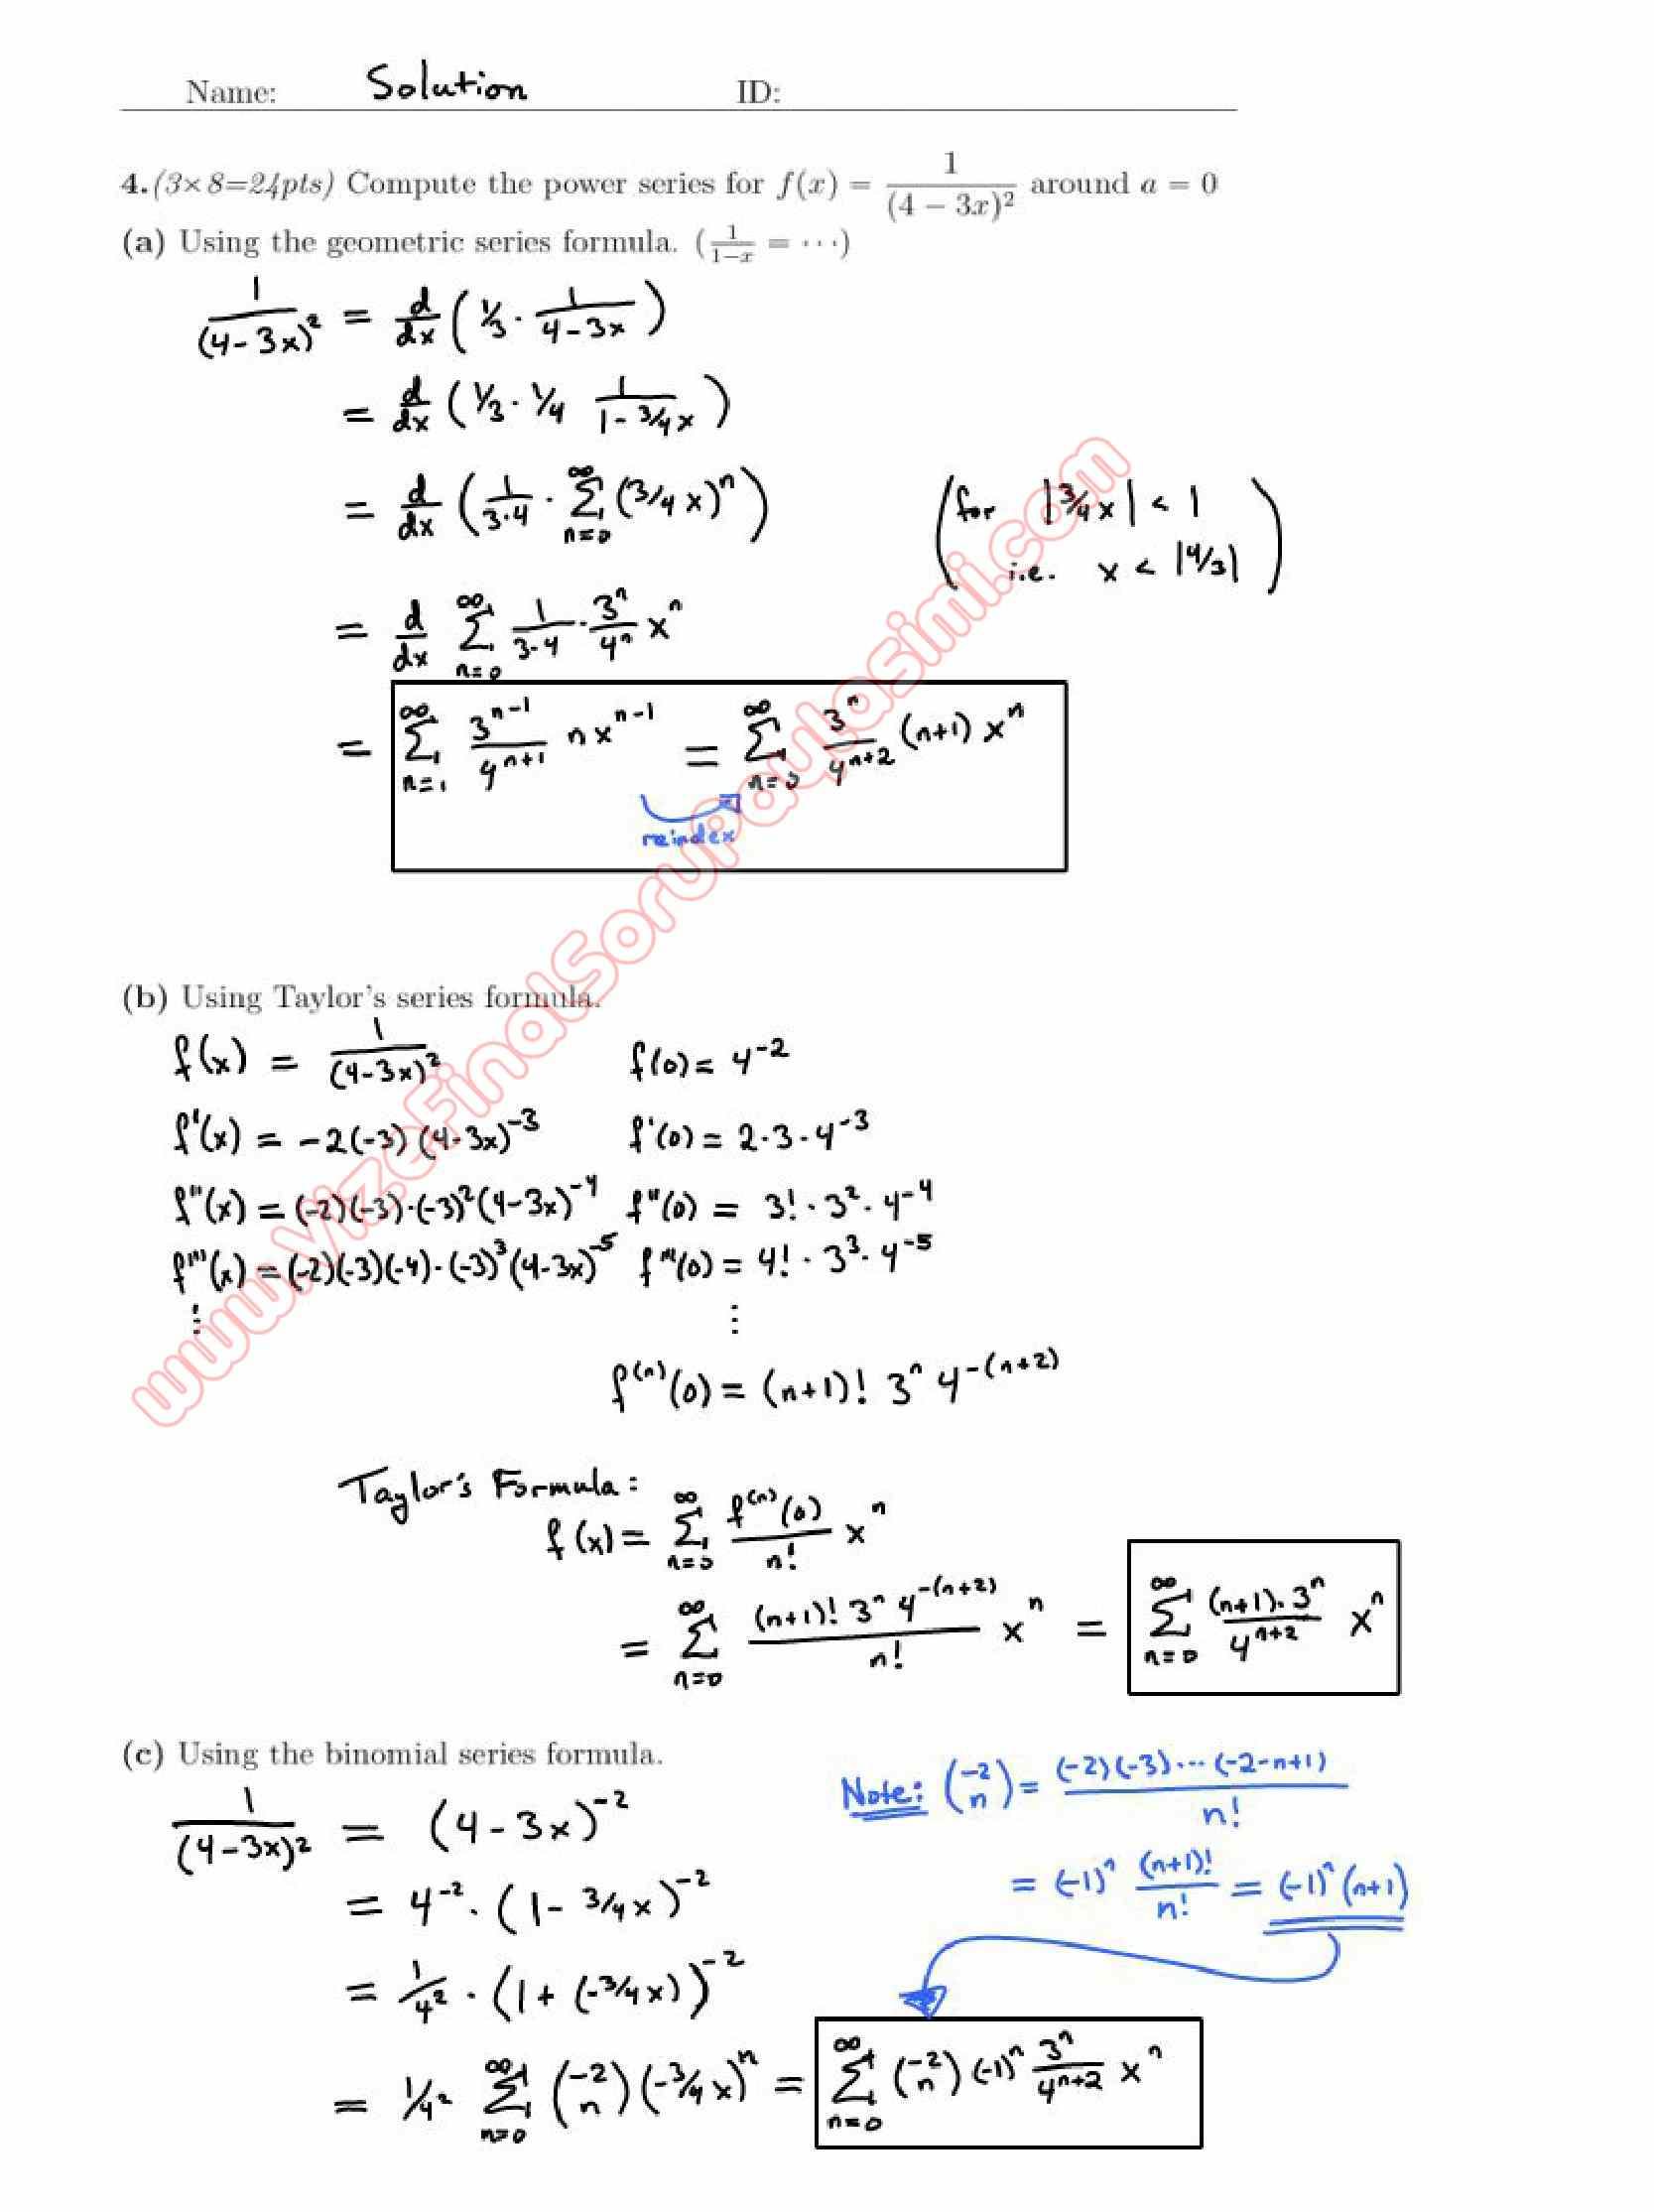 Name: Solution ID:
4.(3×8=24pts) Compute the power series for f(x) = 1/(4 − 3x)² around a = 0
(a) Using the geometric series formula. (1/(1−x) = ⋯)
1/(4-3x)² = d/dx (1/3 · 1/(4-3x))
= d/dx (1/3 · 1/4 1/(1-3/4x))
= d/dx (1/(3·4) · ∑_{n=0}^∞ (3/4 x)ⁿ) (for |3/4x| < 1
i.e. x < |4/3|)
= d/dx ∑_{n=0}^∞ 1/(3·4) · 3ⁿ/4ⁿ xⁿ
= ∑_{n=1}^∞ 3^{n-1}/4^{n+1} n x^{n-1} = ∑_{n=0}^∞ 3ⁿ/4^{n+2} (n+1) xⁿ
reindex
(b) Using Taylor's series formula.
f(x) = 1/(4-3x)² f(0) = 4^{-2}
f'(x) = -2(-3) (4-3x)^{-3} f'(0) = 2·3·4^{-3}
f''(x) = (-2)(-3)·(-3)²(4-3x)^{-4} f''(0) = 3! · 3² · 4^{-4}
f'''(x) = (-2)(-3)(-4)·(-3)³(4-3x)^{-5} f'''(0) = 4! · 3³ · 4^{-5}
⋮ ⋮
f^{(n)}(0) = (n+1)! 3ⁿ 4^{-(n+2)}
Taylor's Formula:
f(x) = ∑_{n=0}^∞ f^{(n)}(0)/n! xⁿ
= ∑_{n=0}^∞ (n+1)! 3ⁿ 4^{-(n+2)}/n! xⁿ = ∑_{n=0}^∞ (n+1)·3ⁿ/4^{n+2} xⁿ
(c) Using the binomial series formula.
Note: (-2 n) = (-2)(-3)⋯(-2-n+1)/n!
= (-1)ⁿ (n+1)!/n! = (-1)ⁿ(n+1)
1/(4-3x)² = (4-3x)^{-2}
= 4^{-2} · (1-3/4x)^{-2}
= 1/4² · (1+(-3/4x))^{-2}
= 1/4² ∑_{n=0}^∞ (-2 n)(-3/4x)ⁿ = ∑_{n=0}^∞ (-2 n)(-1)ⁿ 3ⁿ/4^{n+2} xⁿ
www.VizeFinalSoruPaylasimi.com